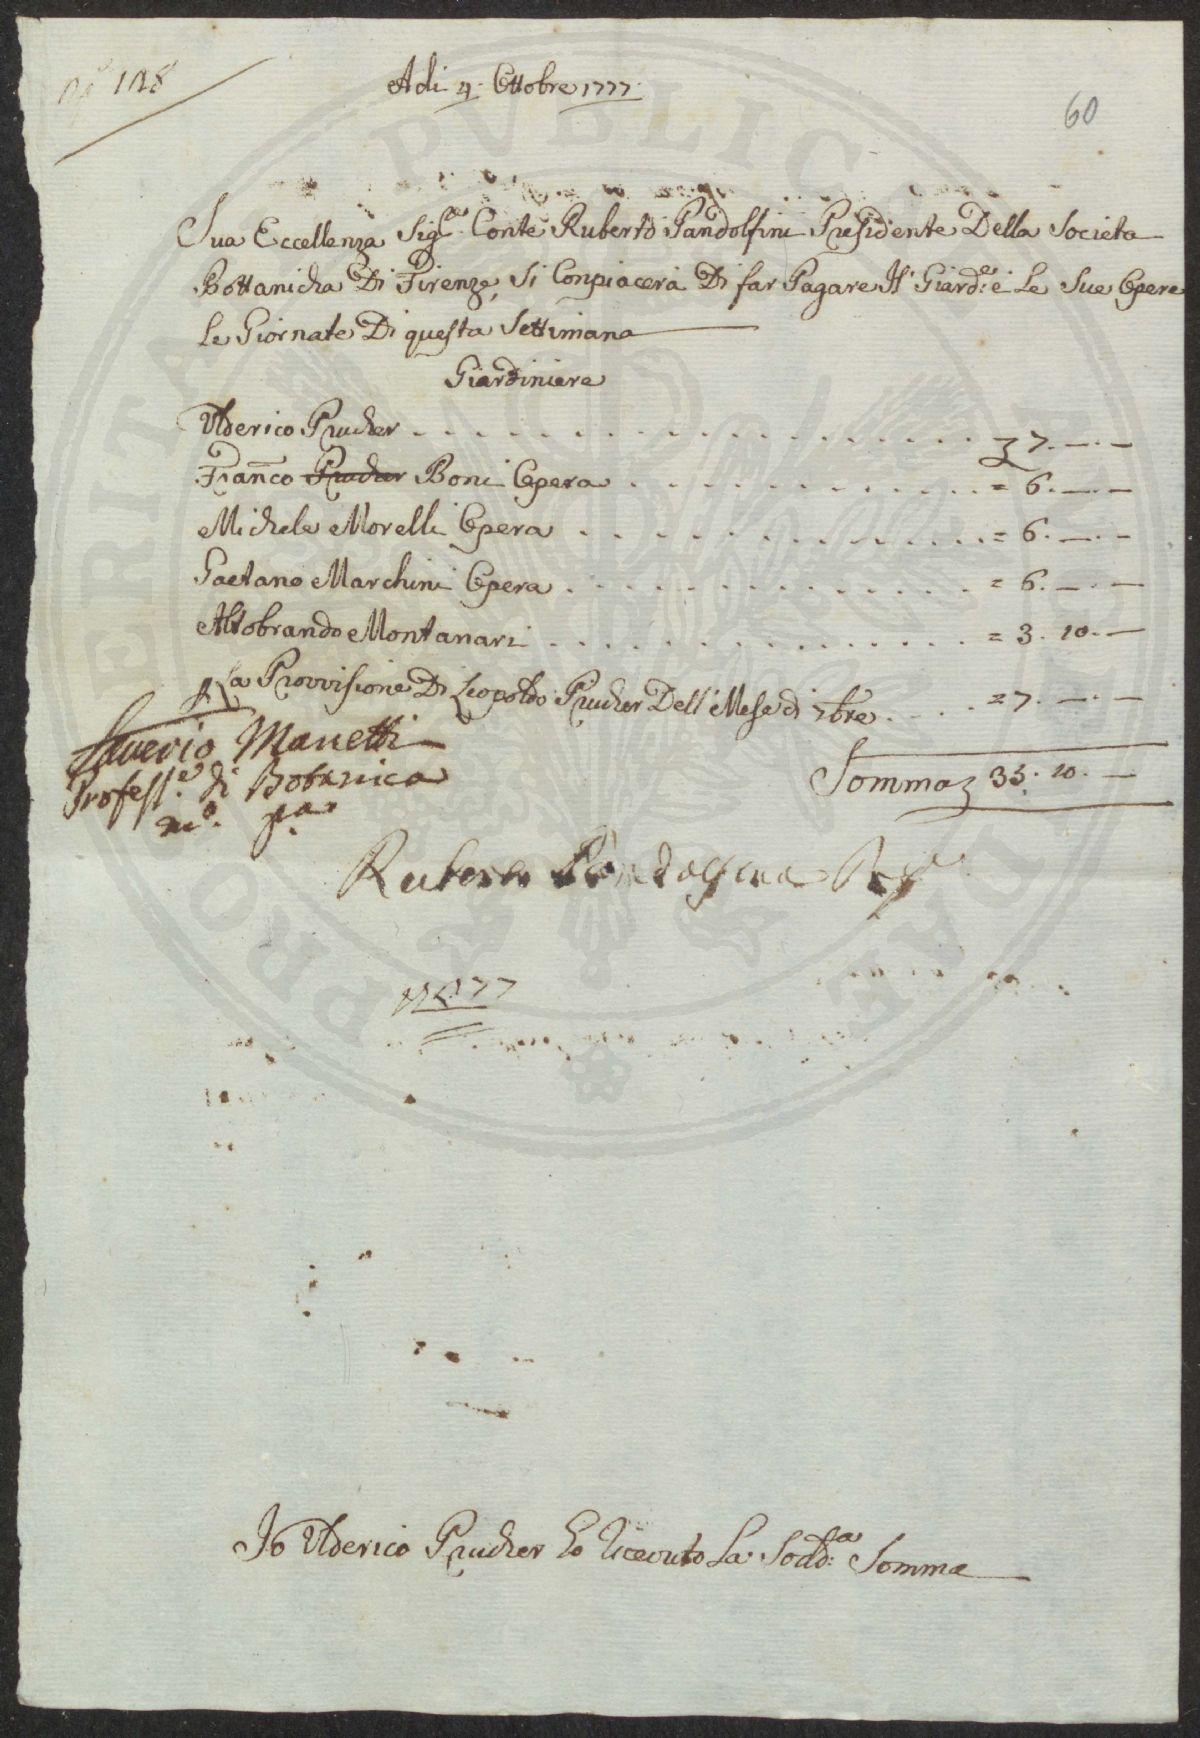 N.º 128
Adi 4. Ottobre 1777.
60
Sua Eccellenza Sig.re Conte Ruberto Pandolfini Presidente Della Societa
Bottanicha Di Firenze, Si Conpiacerà Di far Pagare Il Giard.re e Le Sue Opere
Le Giornate Di questa Settimana
Giardiniere
Ulderico Prucher . . . . . . . . . . . . 7. — . —
Fran̄co Prucher Boni Opera . . . . . . . . . . = 6. — . —
Michele Morelli Opera . . . . . . . . . . . = 6. — . —
Gaetano Marchini Opera . . . . . . . . . . . = 6. — . —
Altobrando Montanari . . . . . . . . . . . = 3. 10. —
La Provvisione Di Leopoldo Prucher Dell Mese di 7bre . . . . = 7. — . —
Saverio Manetti
Profess.e di Botanica
m.o p.a
Somma 35. 10. —
Ruberto Pandolfini
77
Io Ulderico Prucher ho Ricevuto La Sodd.a Somma
PROSPERITATI PVBLICAE